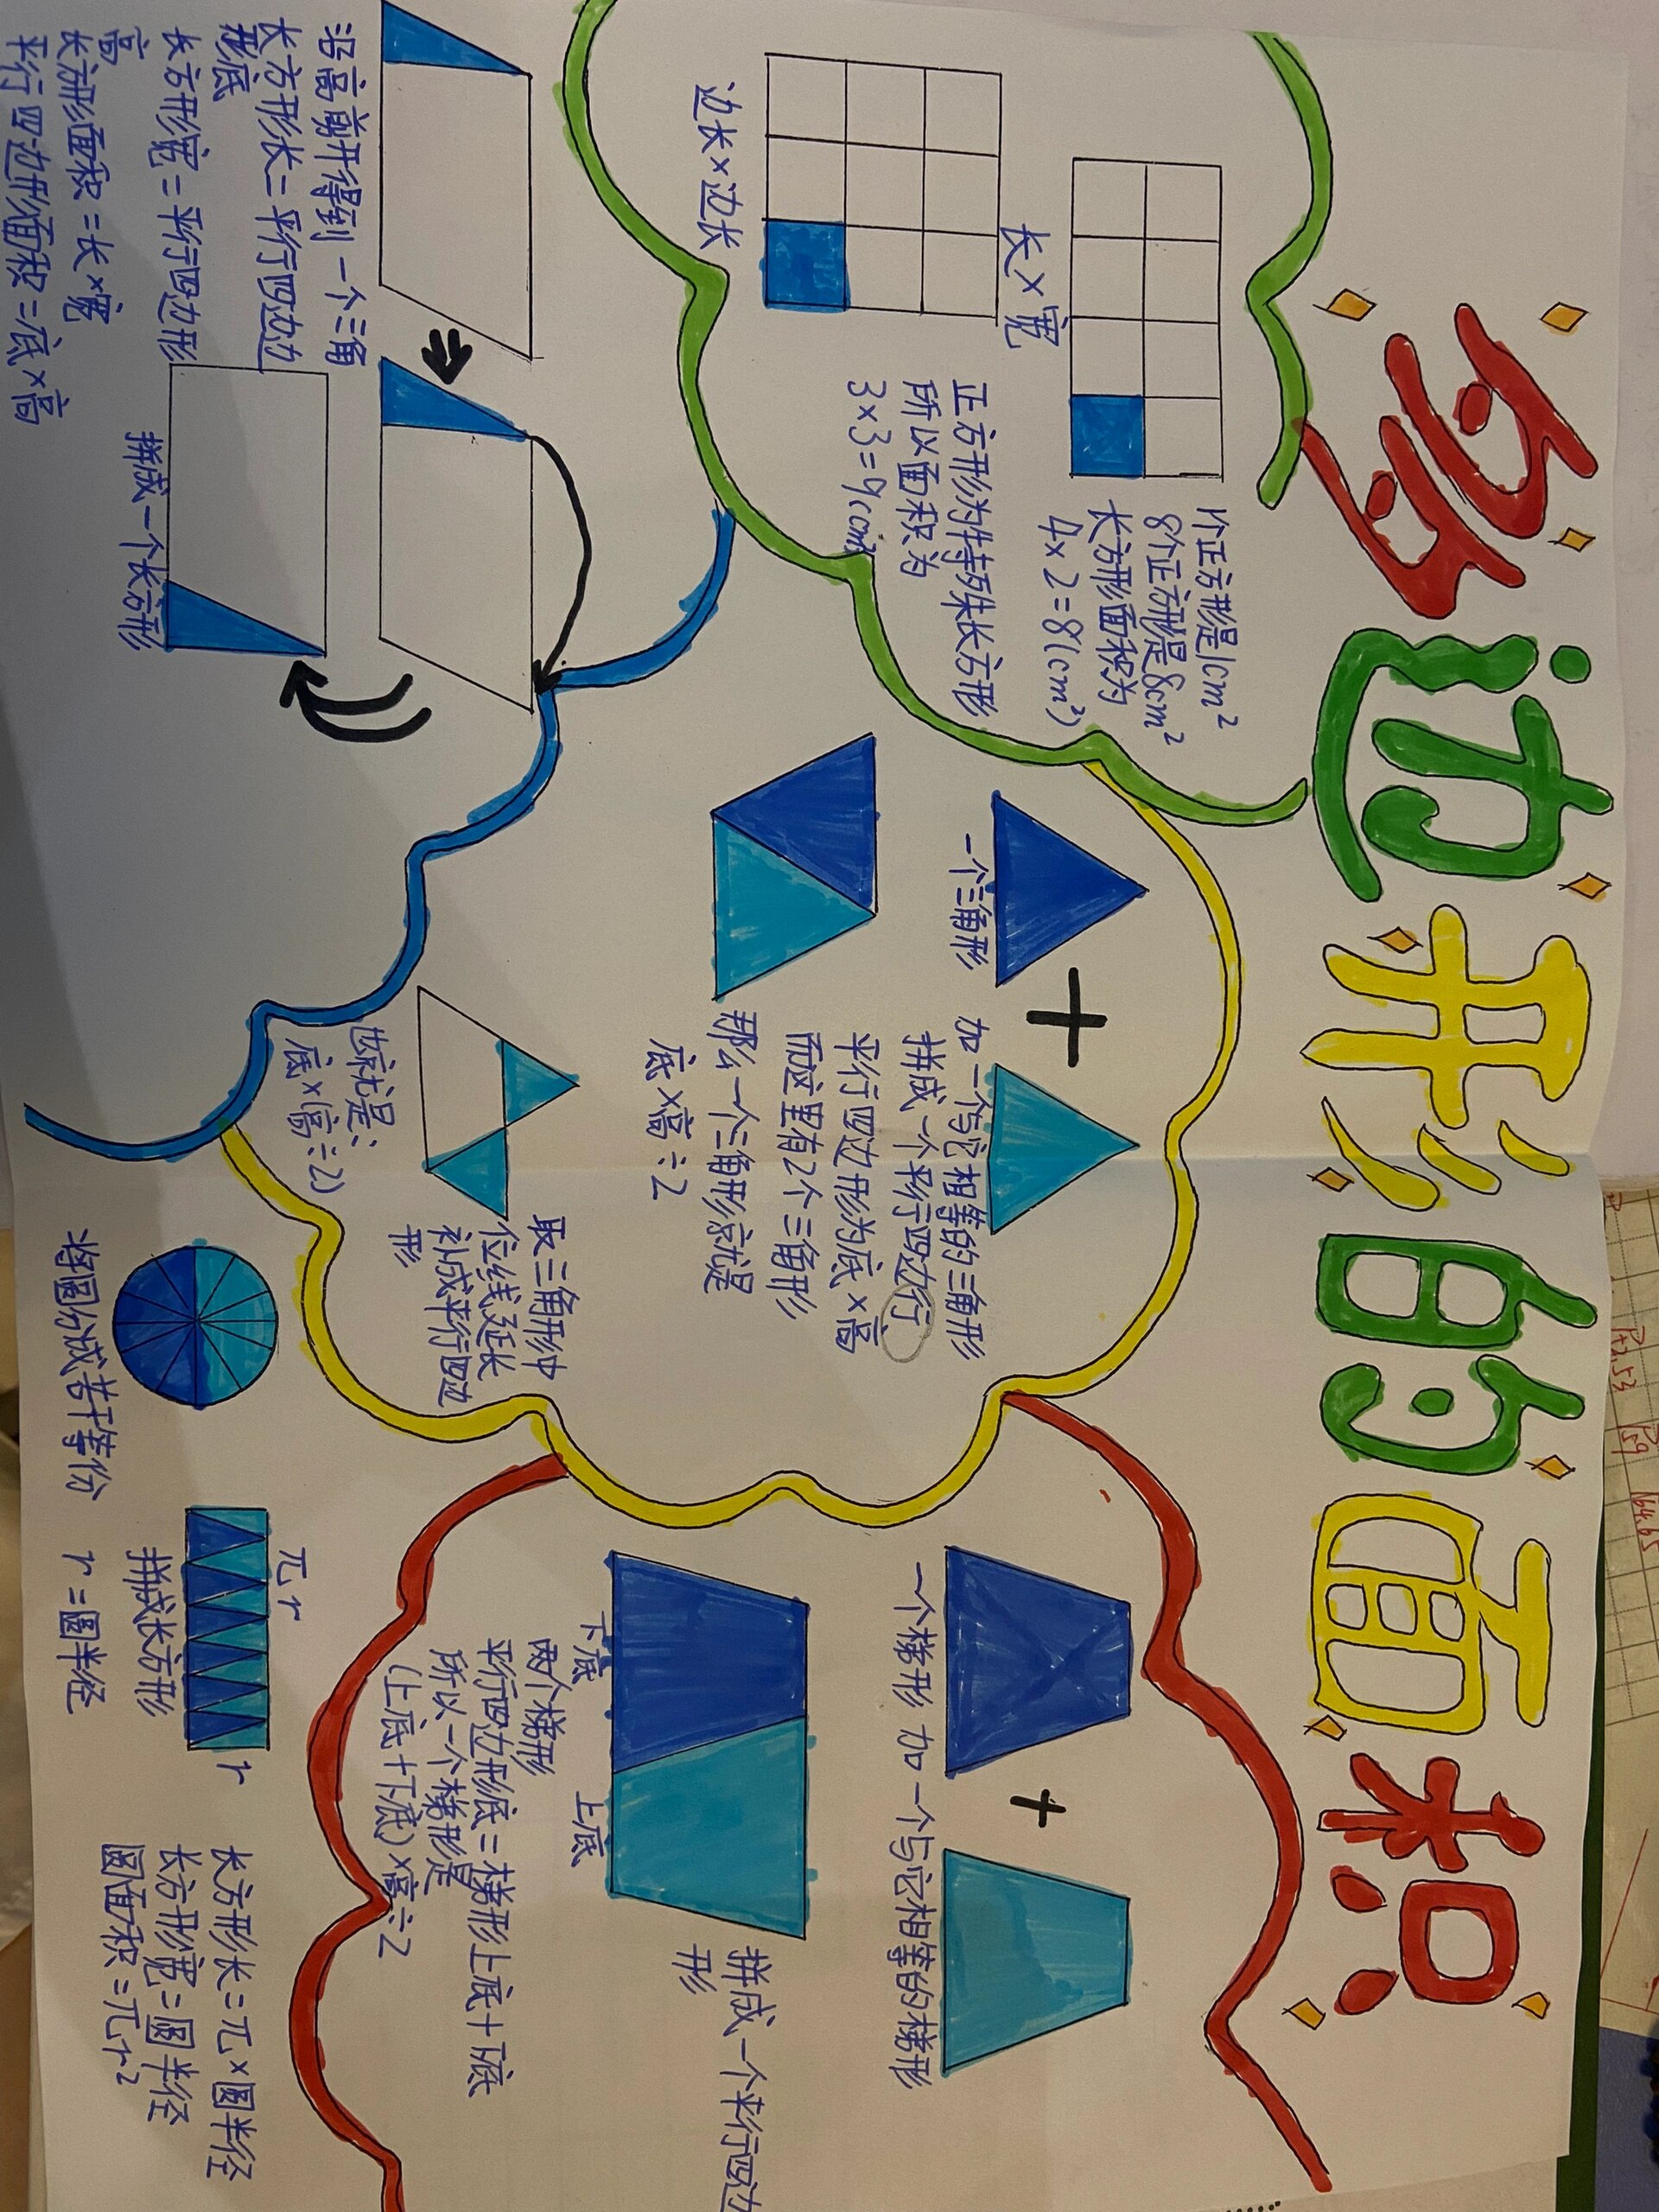 多边形的面积
长×宽
1个正方形是1cm²
8个正方形是8cm²
长方形面积为
4×2=8(cm²)
边长×边长
正方形为特殊长方形
所以面积为
3×3=9(cm²)
沿高剪开得到一个三角
长方形长=平行四边
形底
长方形宽=平行四边形
高
长方形面积=长×宽
平行四边形面积=底×高
拼成一个长方形
一个三角形
加一个与它相等的三角形
拼成一个平行四边行
平行四边形为底×高
而这里有2个三角形
那么一个三角形就是
底×高÷2
取三角形中
位线延长
补成平行四边
形
也就是:
底×(高÷2)
一个梯形 加一个与它相等的梯形
拼成一个平行四边
形
下底
上底
两个梯形
平行四边形底=梯形上底+下底
所以一个梯形是
(上底+下底)×高÷2
将圆分成若干等份
πr
r
拼成长方形
r=圆半径
长方形长=π×圆半径
长方形宽=圆半径
圆面积=πr²